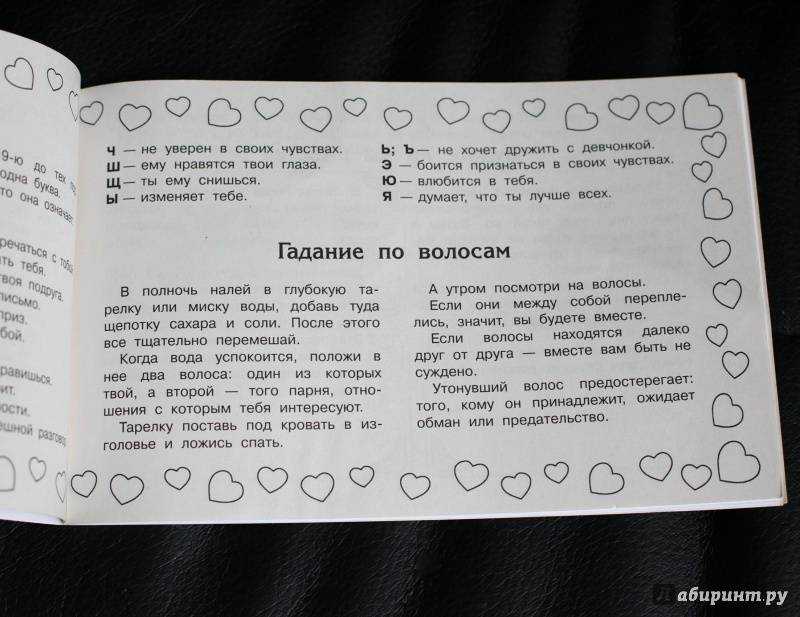 9-ю до тех
одна буква.
то она означает
речаться с тобой
ть тебя.
твоя подруга.
письмо.
приз.
бой.
равишься.
ит.
ости.
ешной разгово
Ч — не уверен в своих чувствах.
Ш — ему нравятся твои глаза.
Щ — ты ему снишься.
Ы — изменяет тебе.
Ь; Ъ — не хочет дружить с девчонкой.
Э — боится признаться в своих чувствах.
Ю — влюбится в тебя.
Я — думает, что ты лучше всех.
Гадание по волосам
В полночь налей в глубокую та-
релку или миску воды, добавь туда
щепотку сахара и соли. После этого
все тщательно перемешай.
Когда вода успокоится, положи в
нее два волоса: один из которых
твой, а второй — того парня, отно-
шения с которым тебя интересуют.
Тарелку поставь под кровать в из-
головье и ложись спать.
А утром посмотри на волосы.
Если они между собой перепле-
лись, значит, вы будете вместе.
Если волосы находятся далеко
друг от друга — вместе вам быть не
суждено.
Утонувший волос предостерегает:
того, кому он принадлежит, ожидает
обман или предательство.
Лабиринт.ру